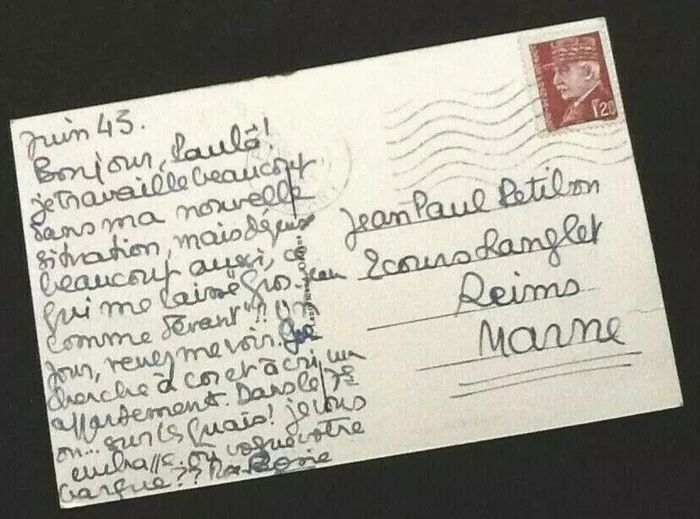 Juin 43.
Bonjour, Paulô!
je travaille beaucoup
dans ma nouvelle
situation, mais dépense
beaucoup aussi, ce
qui me laisse "Gros-jean
comme devant"!! Un
jour, venez me voir. Je
cherche à cor et à cri un
appartement. Dans le 7e
ou... sur les Quais! je vous
embrasse. où vogue votre
barque??
Rosie
Jean Paul Petibon
2 cours Langlet
Reims
Marne
1,20